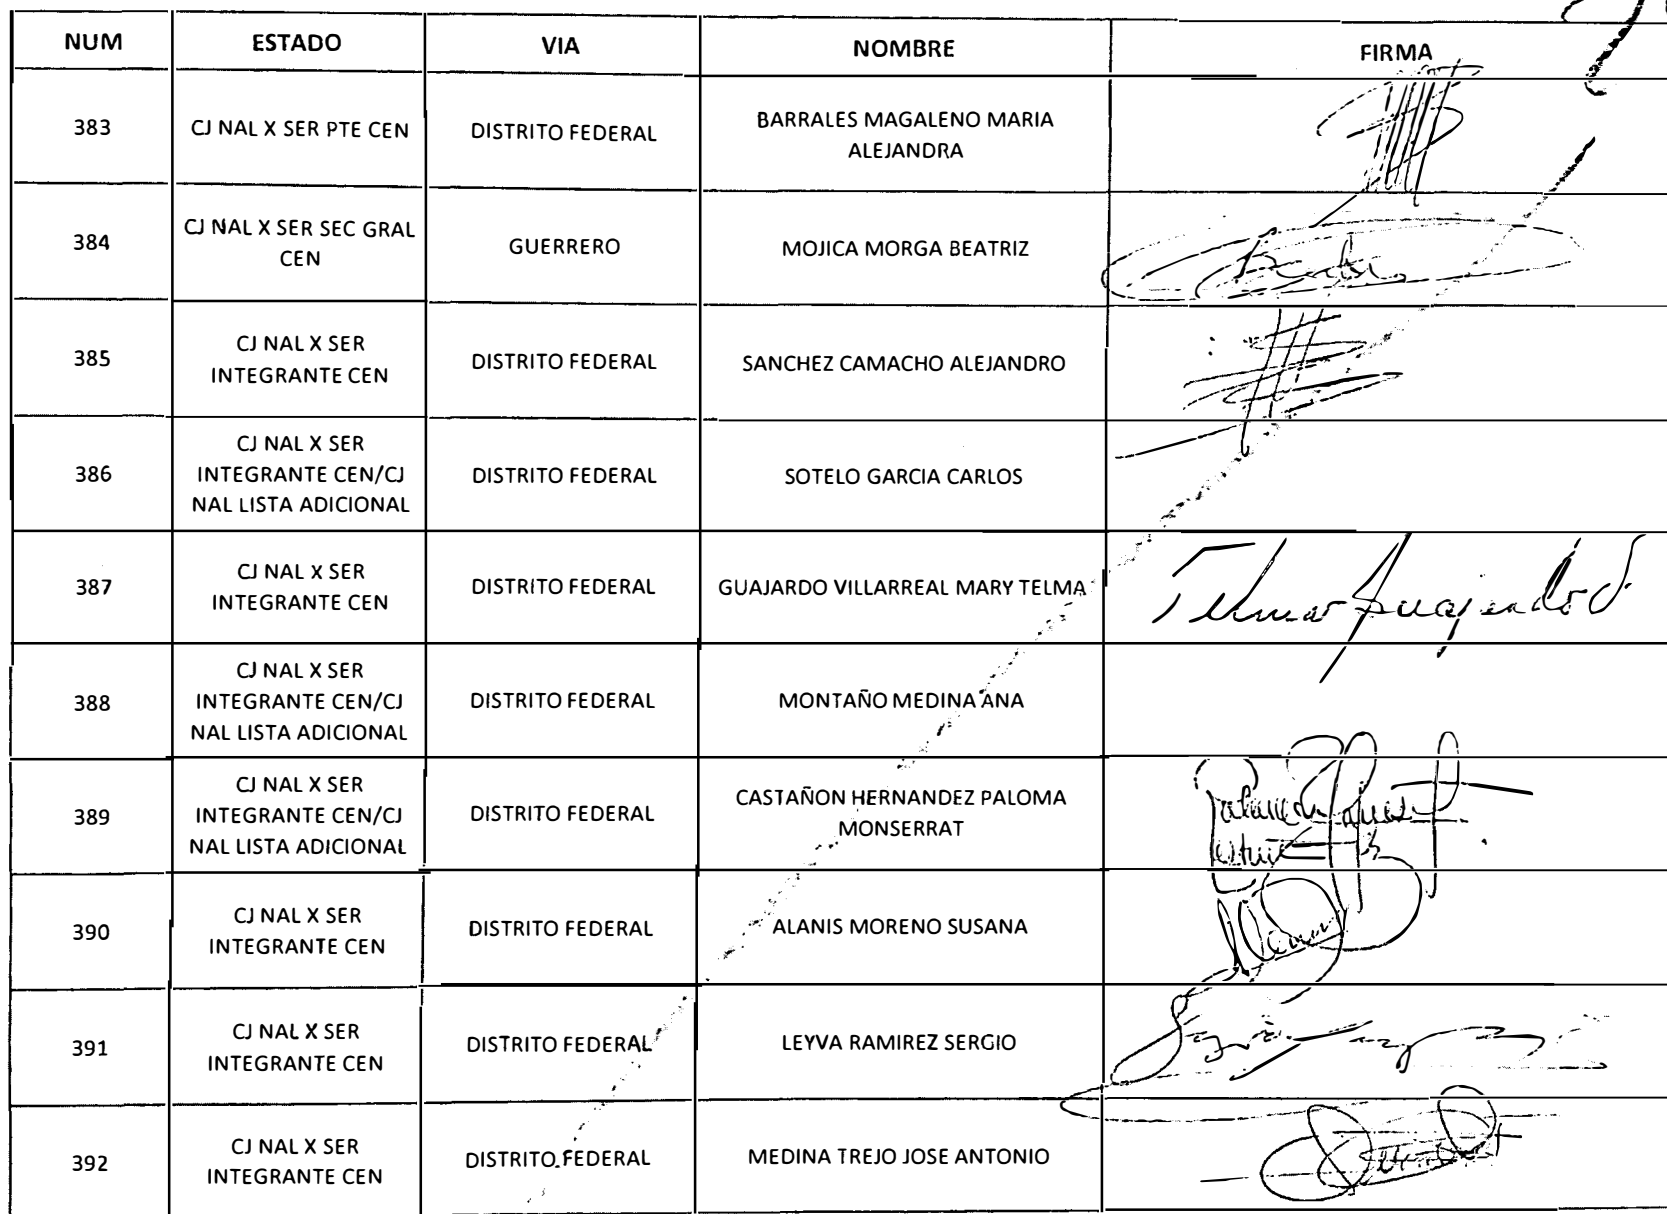 NUM ESTADO VIA NOMBRE FIRMA
383 CJ NAL X SER PTE CEN DISTRITO FEDERAL BARRALES MAGALENO MARIA
ALEJANDRA
384 CJ NAL X SER SEC GRAL
CEN GUERRERO MOJICA MORGA BEATRIZ
385 CJ NAL X SER
INTEGRANTE CEN DISTRITO FEDERAL SANCHEZ CAMACHO ALEJANDRO
386 CJ NAL X SER
INTEGRANTE CEN/CJ
NAL LISTA ADICIONAL DISTRITO FEDERAL SOTELO GARCIA CARLOS
387 CJ NAL X SER
INTEGRANTE CEN DISTRITO FEDERAL GUAJARDO VILLARREAL MARY TELMA Telma Guajardo V.
388 CJ NAL X SER
INTEGRANTE CEN/CJ
NAL LISTA ADICIONAL DISTRITO FEDERAL MONTAÑO MEDINA ANA
389 CJ NAL X SER
INTEGRANTE CEN/CJ
NAL LISTA ADICIONAL DISTRITO FEDERAL CASTAÑON HERNANDEZ PALOMA
MONSERRAT
390 CJ NAL X SER
INTEGRANTE CEN DISTRITO FEDERAL ALANIS MORENO SUSANA
391 CJ NAL X SER
INTEGRANTE CEN DISTRITO FEDERAL LEYVA RAMIREZ SERGIO
392 CJ NAL X SER
INTEGRANTE CEN DISTRITO FEDERAL MEDINA TREJO JOSE ANTONIO